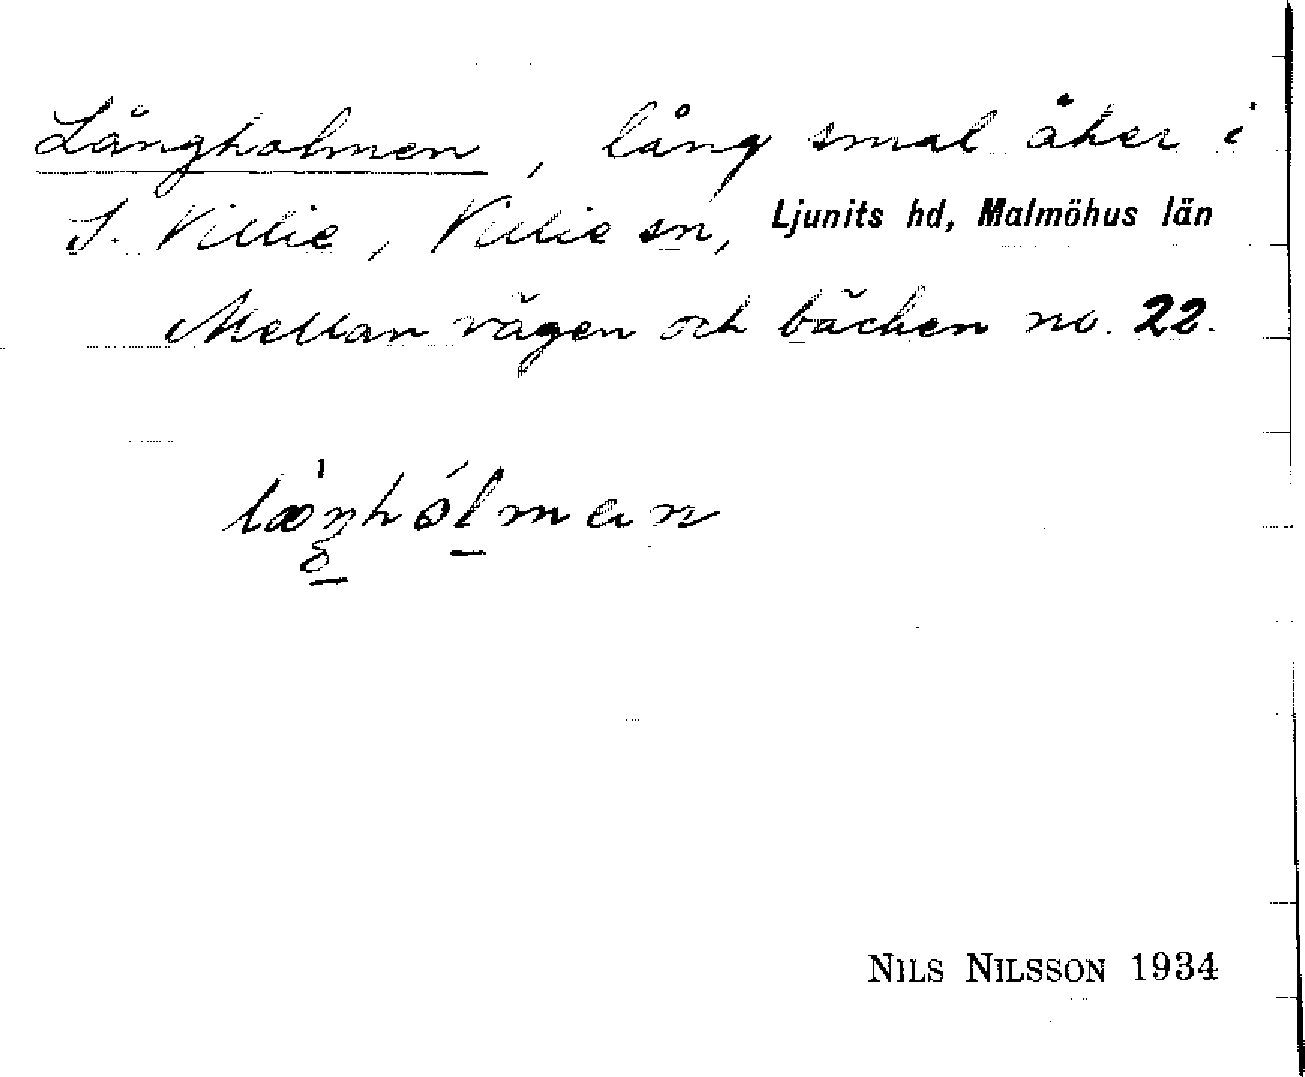 Långholmen, lång smal åker i
S. Villie, Villie sn, Ljunits hd, Malmöhus län
Mellan vägen och bäcken no. 22.
NILS NILSSON 1934